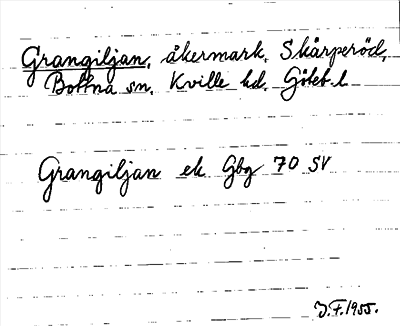 Grangiljan, åkermark, Skärperöd,
Bottna sn. Kville hd. Göteb. l.
Grangiljan ek Gbg 70 SV
J.F. 1955.